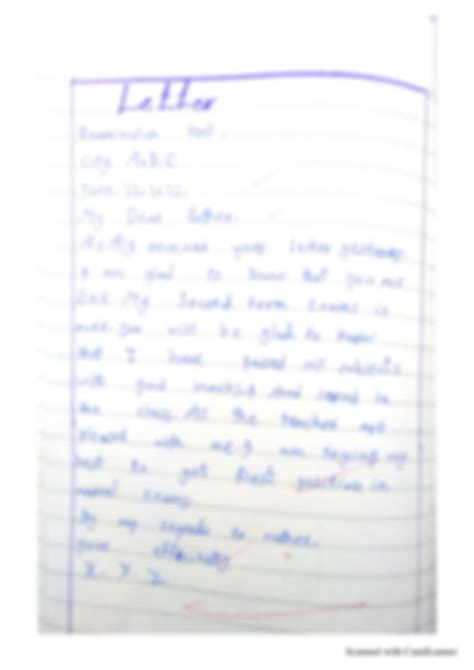 Letter
Examination Hall,
City A.B.C
June.22.2022.
My Dear father.
received your letter yesterday
I am glad to know that you are
My Second term Exams is
over you will be glad to know
that I have passed all subjects
with good marks and in
the class All the teacher are
pleased with me I am trying my
best to get first position in
annual exams
my regards to mother.
your
X. Y. Z.
Scanned with CamScanner